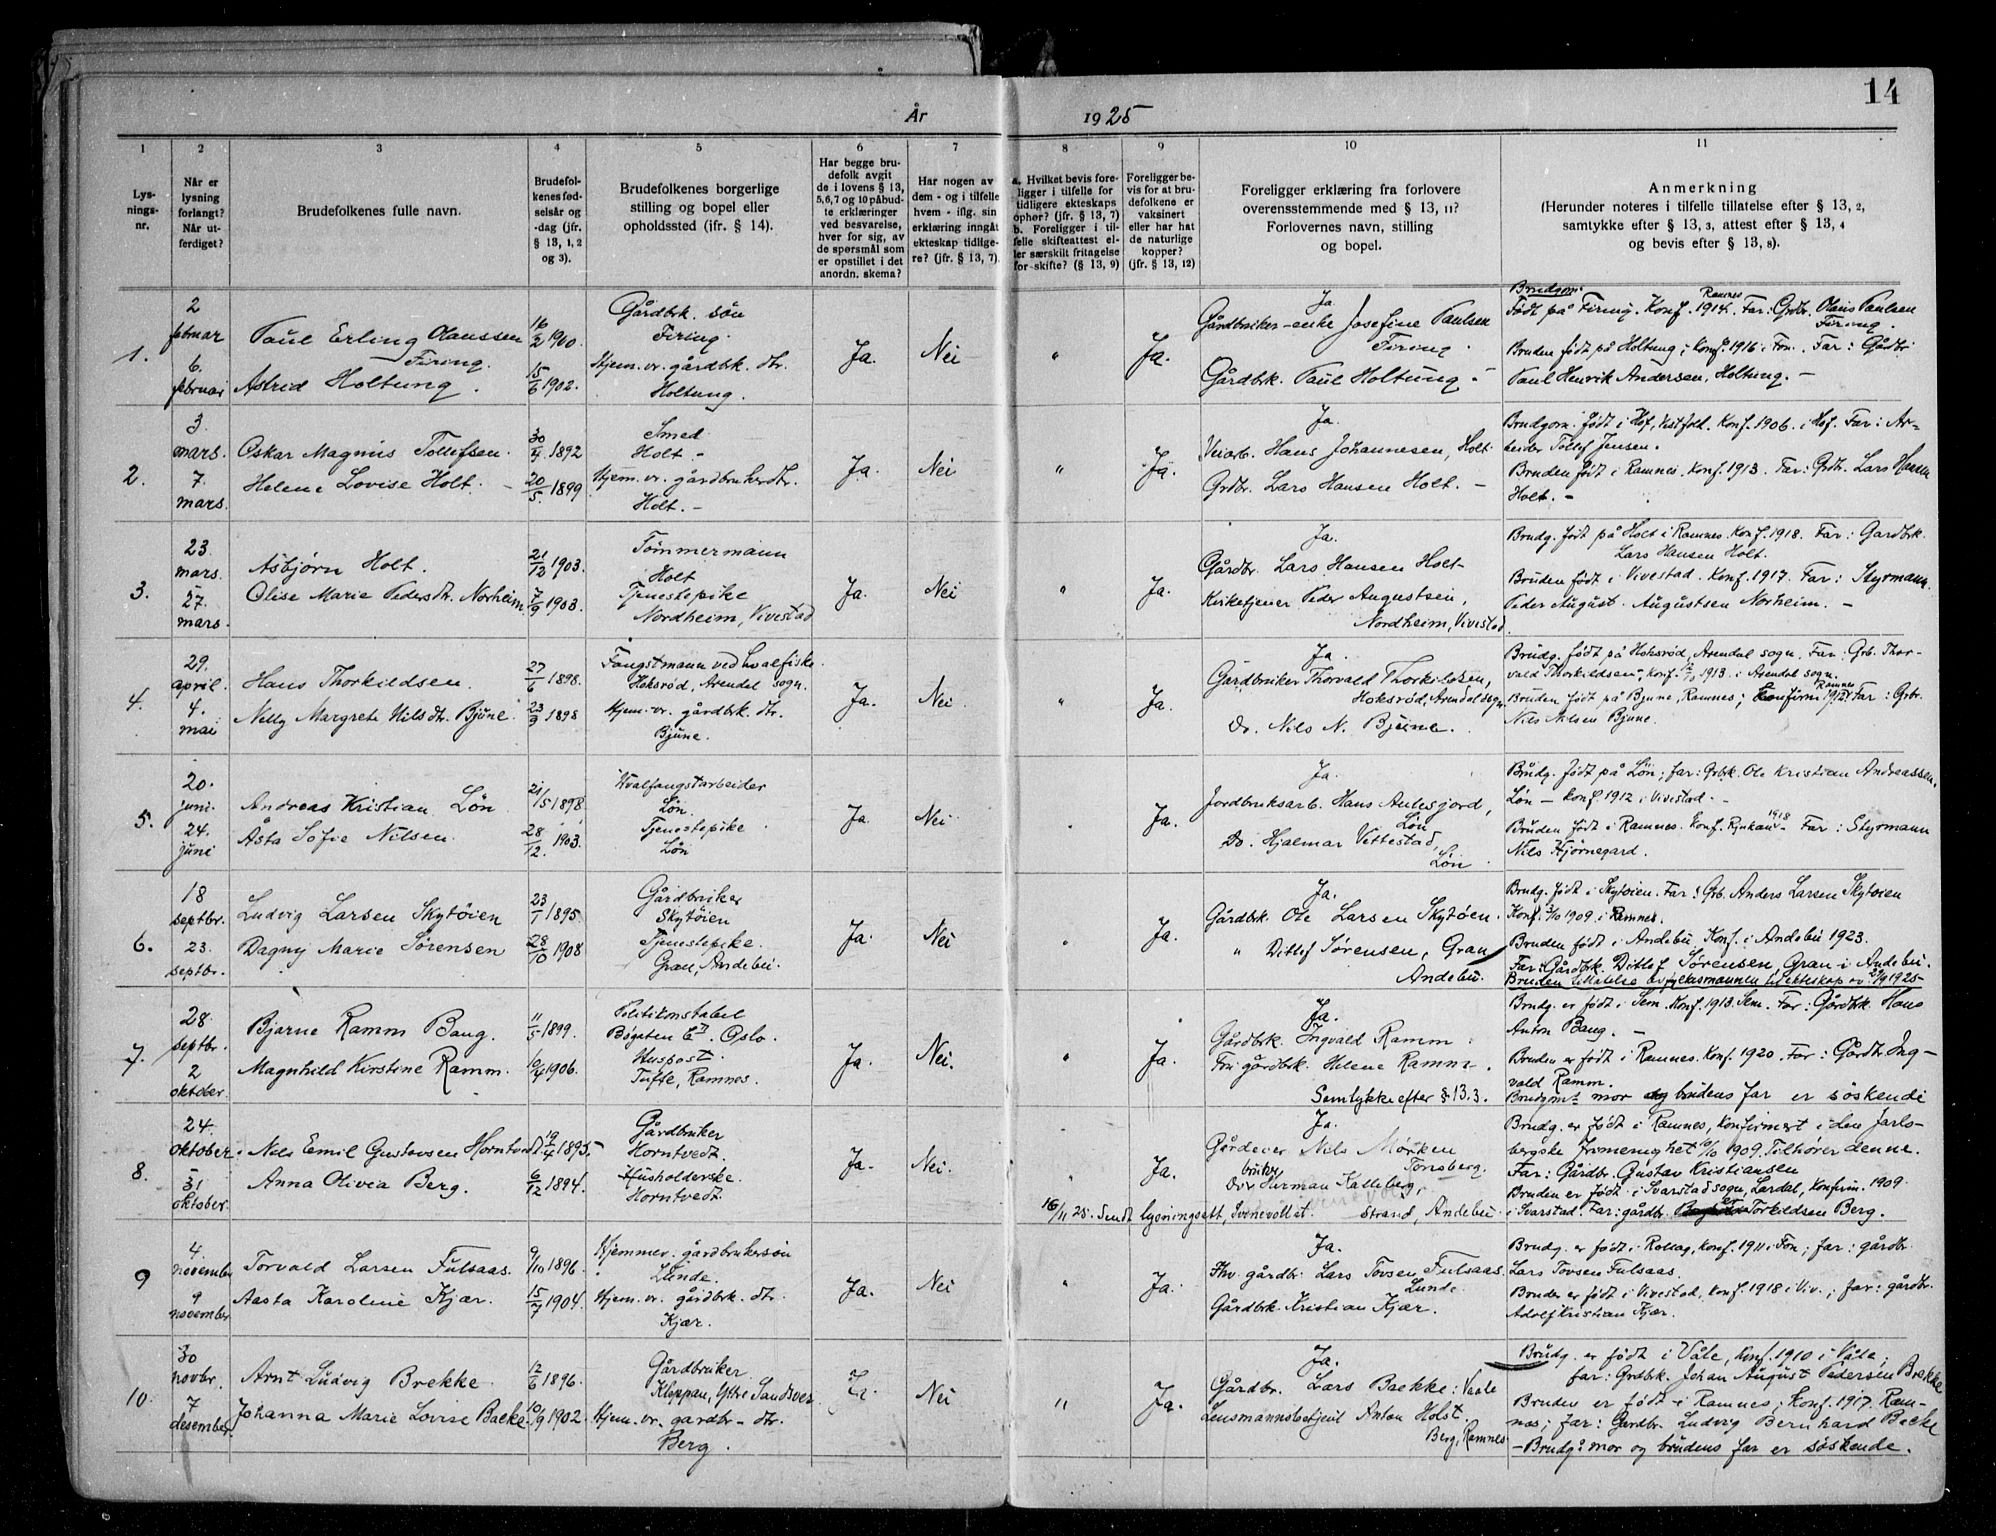 14
År 1925
1 2 3 4 5 6 7 8 9 10 11
Lys-
nings-
nr.
Når er
lysning
forlangt?
Når ut-
ferdiget?
Brudefolkenes fulle navn.
Brudefol-
kenes fød-
selsår og
-dag (jfr.
§ 13, 1, 2
og 3).
Brudefolkenes borgerlige
stilling og bopel eller
opholdssted (ifr. § 14).
Har begge bru-
defolk avgit
de i lovens § 13,
5, 6, 7 og 10 påbud-
te erklæringer
ved besvarelse,
hver for sig, av
de spørsmål som
er opstillet i det
anordn. skema?
Har nogen av
dem - og i tilfelle
hvem - iflg. sin
erklæring inngåt
ekteskap tidlige-
re? (jfr. § 13, 7).
a. Hvilket bevis fore-
ligger i tilfelle for
tidligere ekteskaps
ophør? (jfr. § 13, 7)
b. Foreligger i til-
felle skifteattest el-
ler særskilt fritagelse
for skifte? (§ 13, 9)
Foreligger be-
vis for at bru-
defolkene er
vaksinert
eller har hat
de naturlige
kopper?
(jfr. § 13, 12)
Foreligger erklæring fra forlovere
overensstemmende med § 13, 11?
Forlovernes navn, stilling
og bopel.
Anmerkning
(Herunder noteres i tilfelle tillatelse efter § 13, 2,
samtykke efter § 13, 3, attest efter § 13, 4
og bevis efter § 13, 8).
1.
2
februar
6.
februar
Paul Erling Olaussen
Firing.
Astrid Holtung.
16/2 1900
15/6 1902.
Gårdbrk. søn
Firing.
Hjem. vr. gårdbrk. dtr.
Holtung.
Ja. Nei " Ja.
Ja
Gårdbruker-enke Josefine Paulsen
Firing.
Gårdbrk. Paul Holtung. -
Brudgom:
Født på Firing. Konf. Ramnes 1914. Far: Grdbr. Olaus Paulsen
Firing.
Bruden født på Holtung; Konf. 1916 i Fon. Far: Gårdbr.
Paul Henrik Andersen, Holtung. -
2.
3.
mars.
7.
mars.
Oskar Magnus Tollefsen.
Helene Lovise Holt.
30/4 1892
20/5 1899
Smed.
Holt. -
Hjem. vr. gårdbrukerdtr.
Holt. -
Ja. Nei " Ja.
Ja.
Veiarb. Hans Johannesen, Holt.
Grdbr. Lars Hansen Holt. -
Brudgom. født i Hof, Vestfold. Konf. 1906. i Hof. Far: Ar-
beider Tollef Jensen.
Bruden født i Ramnes. Konf. 1913. Far: Grdbr. Lars Hansen
Holt. -
3.
23.
mars.
27.
mars.
Asbjørn Holt.
Olise Marie Pedersdtr. Norheim.
21/12 1903.
7/9 1903.
Tømmermann
Holt
Tjenestepike
Nordheim, Vivestad
Ja. Nei " Ja.
Ja.
Gårdbr. Lars Hansen Holt-
Kirketjener Peder Augustsen,
Nordheim, Vivestad.
Brudg. født på Holt i Ramnes. Konf. 1918. Far: Gardbrk.
Lars Hansen Holt.
Bruden født i Vivestad. Konf. 1917. Far: Styrmann
Peder August. Augustsen Norheim. -
4.
29.
april.
4.
mai
Hans Thorkildsen.
Nelly Margrete Nilsdtr. Bjune.
27/6 1898.
23/9 1898
Fangstmann ved hvalfiske.
Hoksrød, Arendal sogn.
Hjem. vr. gårdbrk. dtr.
Bjune.
Ja. Nei " Ja.
Ja.
Gårdbruker Thorvald Thorkildsen,
Hoksrød, Arendal sogn.
Do. Nils N. Bjune.
Brudg. født på Hoksrød, Arendal sogn. Far: Grb. Thor-
vald Thorkildsen; Konf. 1913. i Arendal sogn.
Bruden født på Bjune, Ramnes; Konfirm. Ramnes 1912. Far: Grbr.
Nils Nilsen Bjune.
5.
20.
juni.
24.
juni
Andreas Kristian Løn.
Åsta Sofie Nilsen.
21/5 1898
28/12. 1903.
Hvalfangstarbeider
Løn.
Tjenestepike
Løn
Ja. Nei. Ja.
Ja.
Jordbruksarb. Hans Aulesjord,
Løn
Do. Hjalmar Vettestad,
Løn.
Brudg. født på Løn; far: Grbrk. Ole Kristian Andreassen,
Løn - Konf. 1912 i Vivestad. -
Bruden født i Ramnes. Konf. Rjukan 1918 - Far: Styrmann
Nils Hjørnegard.
6.
18
septbr.
23.
septbr.
Ludvig Larsen Skytøien
Dagny Marie Sørensen
23/1 1895.
28/10 1908
Gårdbruker
Skytøien
Tjenestepike.
Gran, Andebu.
Ja. Nei Ja.
Ja.
Gårdbrk. Ole Larsen Skytøen.
" Ditlef Sørensen, Gran
Andebu.
Brudg. født i Skytøien. Far: Grb. Anders Larsen Skytøien
Konf. 3/10 1909. i Ramnes.
Bruden født i Andebu. Konf. i Andebu 1923.
Far: Gårdbrk. Ditlef Sørensen, Gran i Andebu.
Bruden tillatelse av fylkesmannen til ekteskap av 21/9 1925-
7.
28.
septbr.
2
oktober
Bjarne Ramm Baug.
Magnhild Kirstine Ramm.
11/5 1899.
10/4 1906.
Politikonstabel
Bøgaten 6II. Oslo.
Huspost.
Tufte, Ramnes.
Ja. Nei. " Ja.
Ja.
Gårdbrk. Ingvald Ramm
Fru gårdbrk. Helene Ramm.
Samtykke efter § 13.3.
Brudg. er født i Sem. Konf. 1913. Sem. Far: Gårdbrk. Hans
Anton Baug. -
Bruden er født i Ramnes. Konf. 1920. Far: Gårdbr. Ing-
vald Ramm.
Brudgoms mor og brudens far er søskende
8.
24.
oktober.
31
oktober.
Nils Emil Gustavsen Horntvedt
Anna Olivia Berg.
19/4 1895.
6/12 1894.
Gårdbruker
Horntvedt.
Husholderske.
Horntvedt.
Ja. Nei. " Ja.
Ja.
Gårdeier Nils Mørken
Tønsberg.
bruker
Do. Herman Kalleberg,
Strand, Andebu.
16/11 25. Sendt lysningsatt,
Brudg. er født i Ramnes, konfirmert i den Jarls-
bergske frimenighet 10/10 1909. Tilhører denne.
Far: Gårdbr. Gustav Kristiansen
Bruden er født i Svarstad sogn, Lardal, Konfirm. 1909.
i Svarstad. Far: gårdbr. Torkildsen Berg.
9
4.
november
9
november
Torvald Larsen Fulsaas.
Aasta Karoline Kjær.
9/10 1896.
15/7 1904.
Hjemmev. gårdbrukersøn
Lunde.
Hjem. vr. gårdbrk. dtr.
Kjær.
Ja. Nei " Ja.
Ja.
Fhv. gårdbr. Lars Tovsen Fulsaas.
Lunde.
Gårdbrk. Kristian Kjær.
Brudg. er født i Rollag, konf. 1911 i Fon; far: gårdbr.
Lars Tovsen Fulsaas.
Bruden er født i Vivestad, konf. 1918 i Viv.; far: gårdbr.
Adolf Kristian Kjær.
10.
30
novbr.
7
desember
Arnt Ludvig Brekke.
Johanna Marie Lovise Bakke
12/6 1896.
10/9 1902.
Gårdbruker
Kleppan, Ytre Sandsver.
Hjem. vr. gardbr-dtr.
Berg.
Ja. Nei " Ja.
Ja.
Gårdbr. Lars Bakke: Vaale
Lensmannsbetjent Anton Holst.
Berg, Ramnes.
Brudg. er født i Våle, Konf. 1910 i Våle;
far: Grdbk. Johan August Pedersen Brekke
Bruden er født i Ramnes; Konf. 1917. Ram-
nes; far: Gardbr. Ludvig Bernhard Bakke
- Brudgs mor og brudens far er søskende.